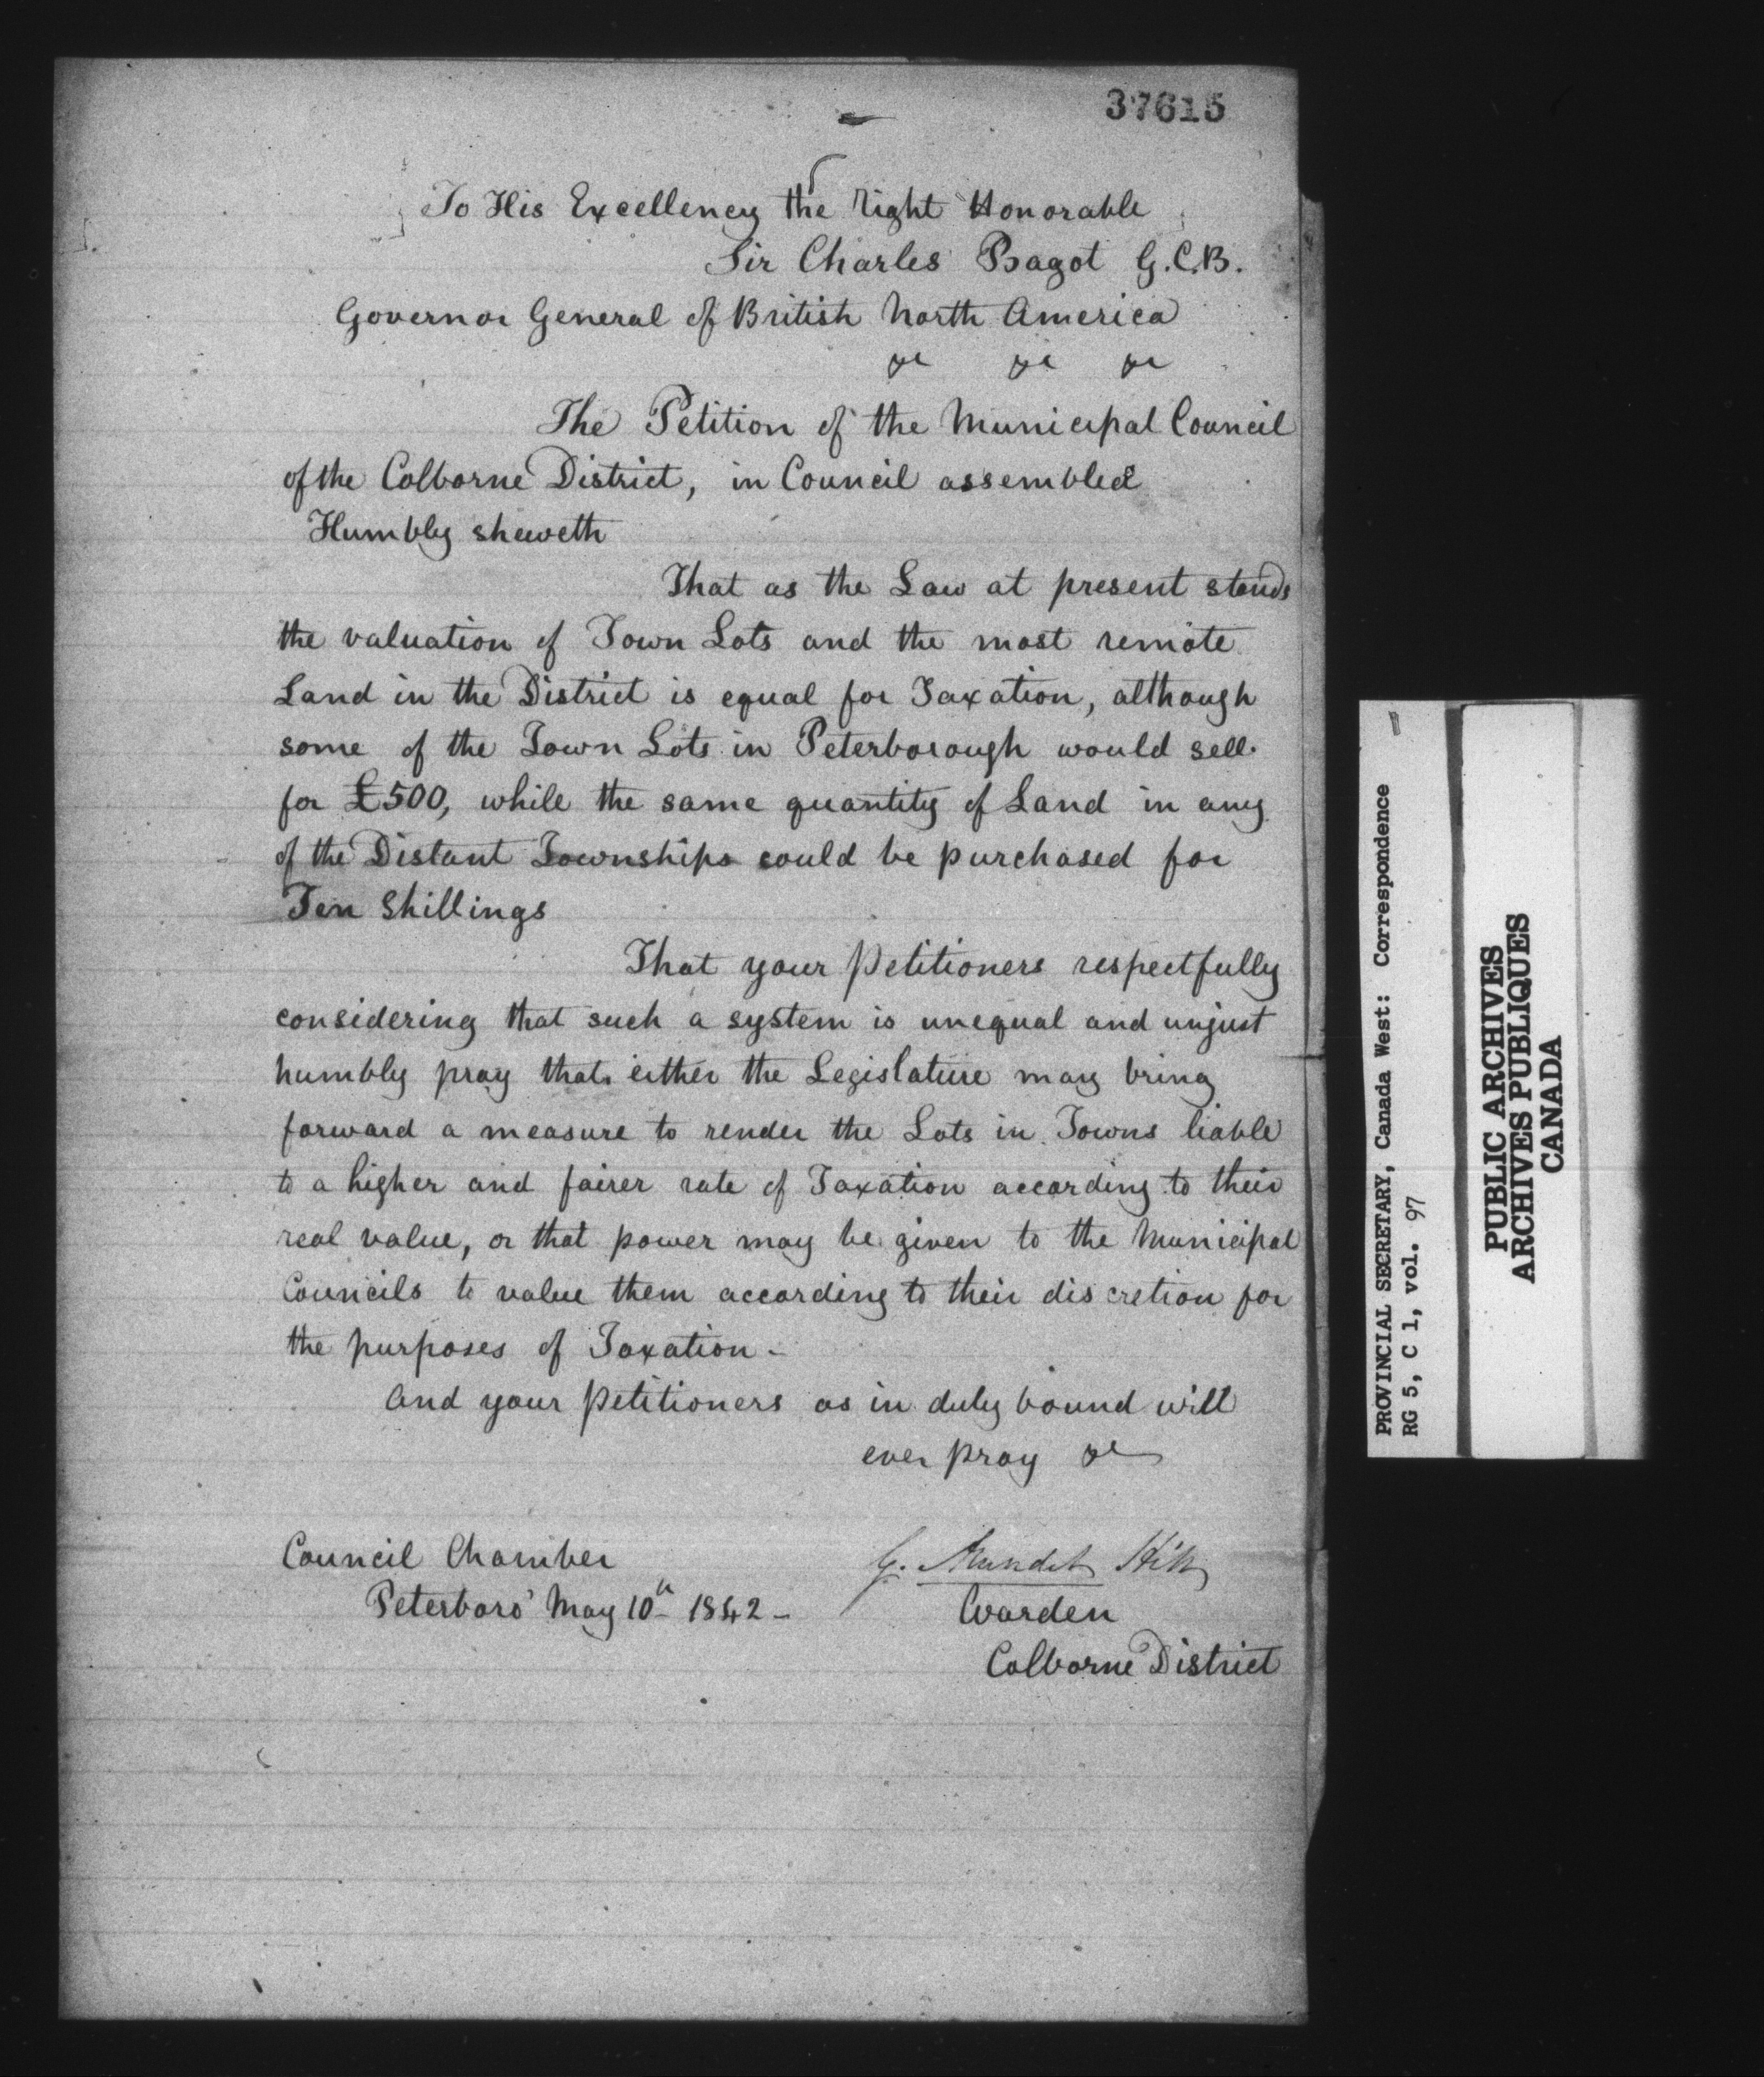 37615
To His Excellency the Right Honorable
Sir Charles Bagot G.C.B.
Governor General of British North America
&c &c &c
The Petition of the Municipal Council
of the Colborne District, in Council assembled
Humbly sheweth
That as the Law at present stands
the valuation of Town Lots and the most remote
Land in the District is equal for Taxation, although
some of the Town Lots in Peterborough would sell
for £500, while the same quantity of Land in any
of the Distant Townships could be purchased for
Ten Shillings
That your Petitioners respectfully
considering that such a system is unequal and unjust
humbly pray that either the Legislature may bring
forward a measure to render the Lots in Towns liable
to a higher and fairer rate of Taxation according to their
real value, or that power may be given to the Municipal
Councils to value them according to their discretion for
the purposes of Taxation -
And your Petitioners as in duty bound will
ever pray &c
Council Chamber
Peterboro' May 10th 1842 -
G.
Warden
Colborne District
PROVINCIAL SECRETARY, Canada West: Correspondence
RG 5, C 1, vol. 97
PUBLIC ARCHIVES
ARCHIVES PUBLIQUES
CANADA